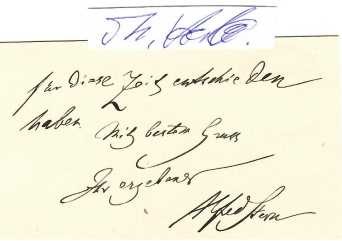 Th.
für diese Zeit entschieden
haben Mit bestem Gruss
Ihr ergebener
Alfred Stern